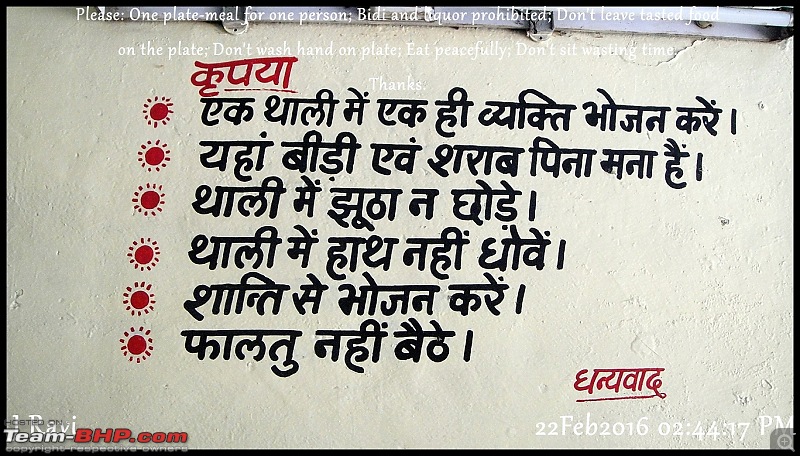 Please: One plate-meal for one person; Bidi and liquor prohibited; Don't leave tasted food
on the plate; Don't wash hand on plate; Eat peacefully; Don't sit wasting time.
Thanks.
कृपया
एक थाली में एक ही व्यक्ति भोजन करें।
यहां बीड़ी एवं शराब पिना मना हैं।
थाली में झूठा न छोड़े।
थाली में हाथ नहीं धोवें।
शान्ति से भोजन करें।
फालतु नहीं बैठे।
धन्यवाद
Ravi
22Feb2016 02:44:17 PM
HOSTED ON
Team-BHP.com
copyright respective owners